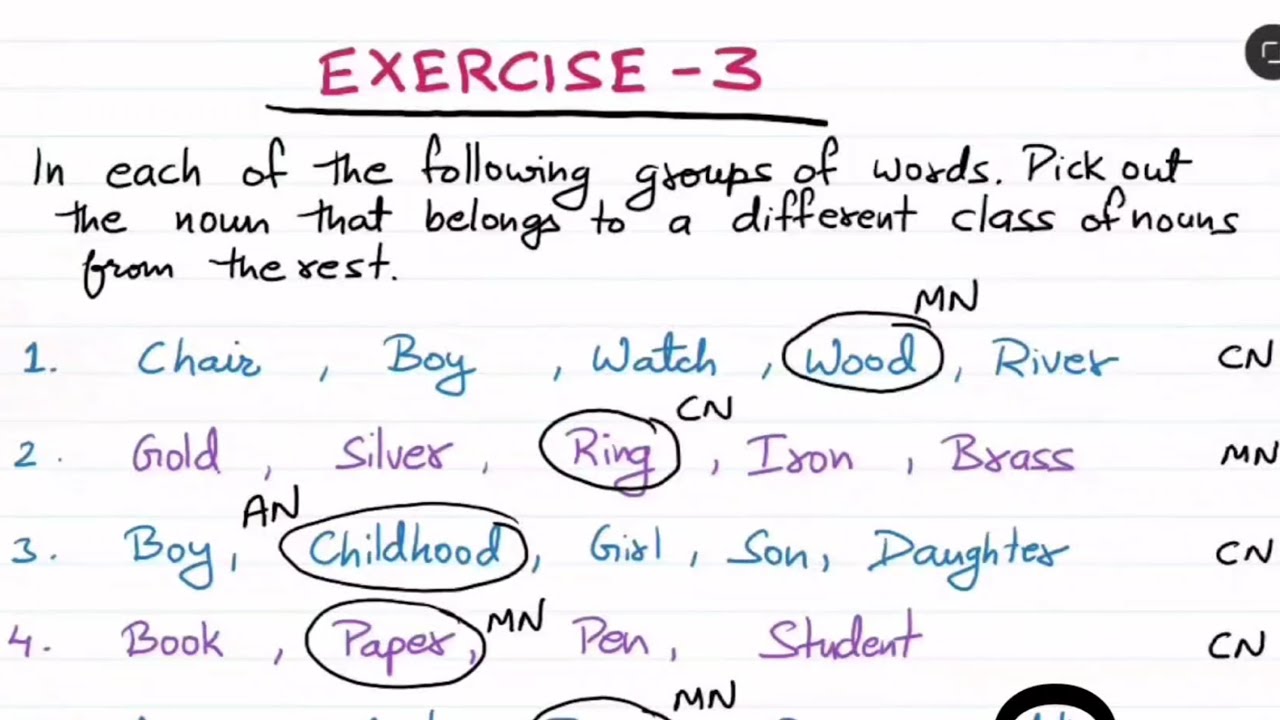 EXERCISE - 3
In each of the following groups of words. Pick out
the noun that belongs to a different class of nouns
from the rest.
MN
1. Chair , Boy , Watch , Wood , River CN
CN
2. Gold , Silver , Ring , Iron , Brass MN
AN
3. Boy , Childhood , Girl , Son , Daughter CN
4. Book , Paper , MN Pen , Student CN
MN